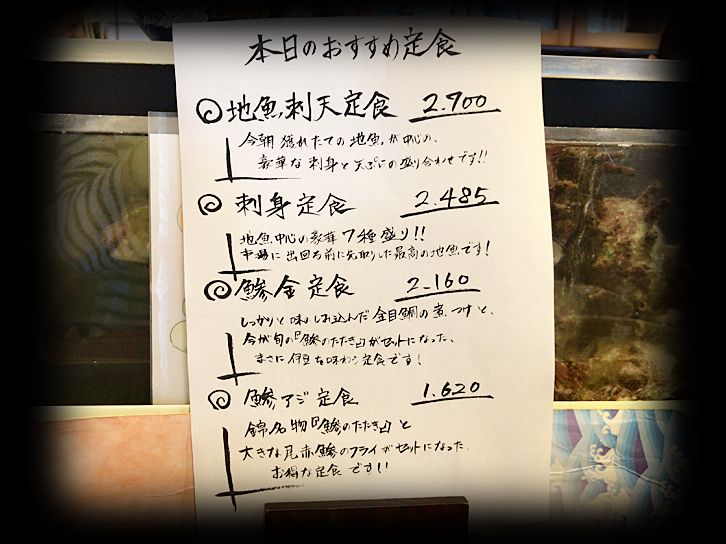 本日のおすすめ定食
地魚刺天定食 2.700
今朝獲れたての地魚が中心の、
豪華な刺身と天ぷらの盛り合わせです!!
刺身定食 2.485
地魚中心の豪華7種盛り!!
市場に出回る前に先取りした最高の地魚です!
鯵金定食 2.160
しっかりと味しみ込んだ金目鯛の煮つけと、
今が旬の「鯵のたたき」がセットになった、
まさに伊豆な味わう定食です!
鯵アジ定食 1.620
錦名物「鯵のたたき」と
大きな尾赤鯵のフライがセットになった、
お得な定食です!!